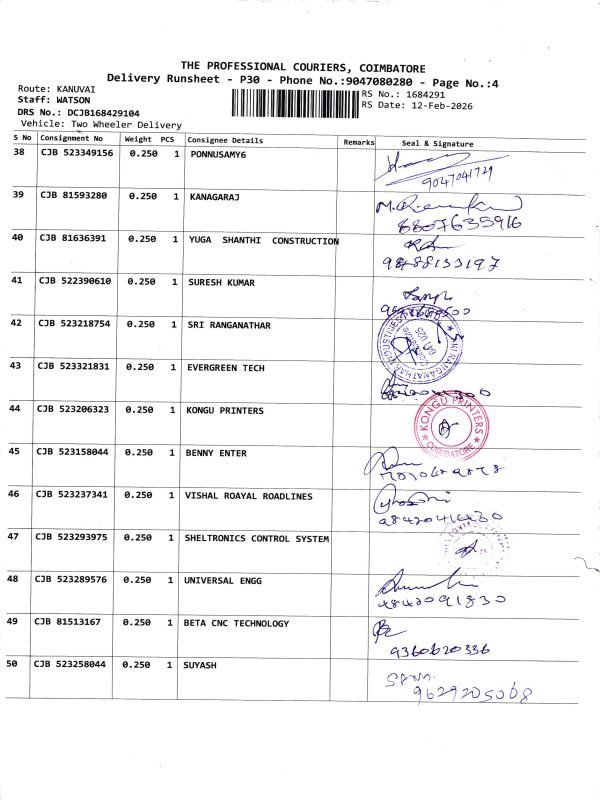 THE PROFESSIONAL COURIERS, COIMBATORE
Delivery Runsheet - P30 - Phone No.:9047080280 - Page No.:4
Route: KANUVAI
Staff: WATSON
DRS No.: DCJB168429104
Vehicle: Two Wheeler Delivery
RS No.: 1684291
RS Date: 12-Feb-2026
S No Consignment No Weight PCS Consignee Details Remarks Seal & Signature
38 CJB 523349156 0.250 1 PONNUSAMY6
9047041729
39 CJB 81593280 0.250 1 KANAGARAJ
8807635916
40 CJB 81636391 0.250 1 YUGA SHANTHI CONSTRUCTION
9488133197
41 CJB 522390610 0.250 1 SURESH KUMAR
42 CJB 523218754 0.250 1 SRI RANGANATHAR
SRI RANGANATHAR INDUSTRIES
43 CJB 523321831 0.250 1 EVERGREEN TECH
44 CJB 523206323 0.250 1 KONGU PRINTERS
KONGU PRINTERS
COIMBATORE
45 CJB 523158044 0.250 1 BENNY ENTER
46 CJB 523237341 0.250 1 VISHAL ROAYAL ROADLINES
9842041430
47 CJB 523293975 0.250 1 SHELTRONICS CONTROL SYSTEM
48 CJB 523289576 0.250 1 UNIVERSAL ENGG
9842091830
49 CJB 81513167 0.250 1 BETA CNC TECHNOLOGY
9360620336
50 CJB 523258044 0.250 1 SUYASH
9629205068